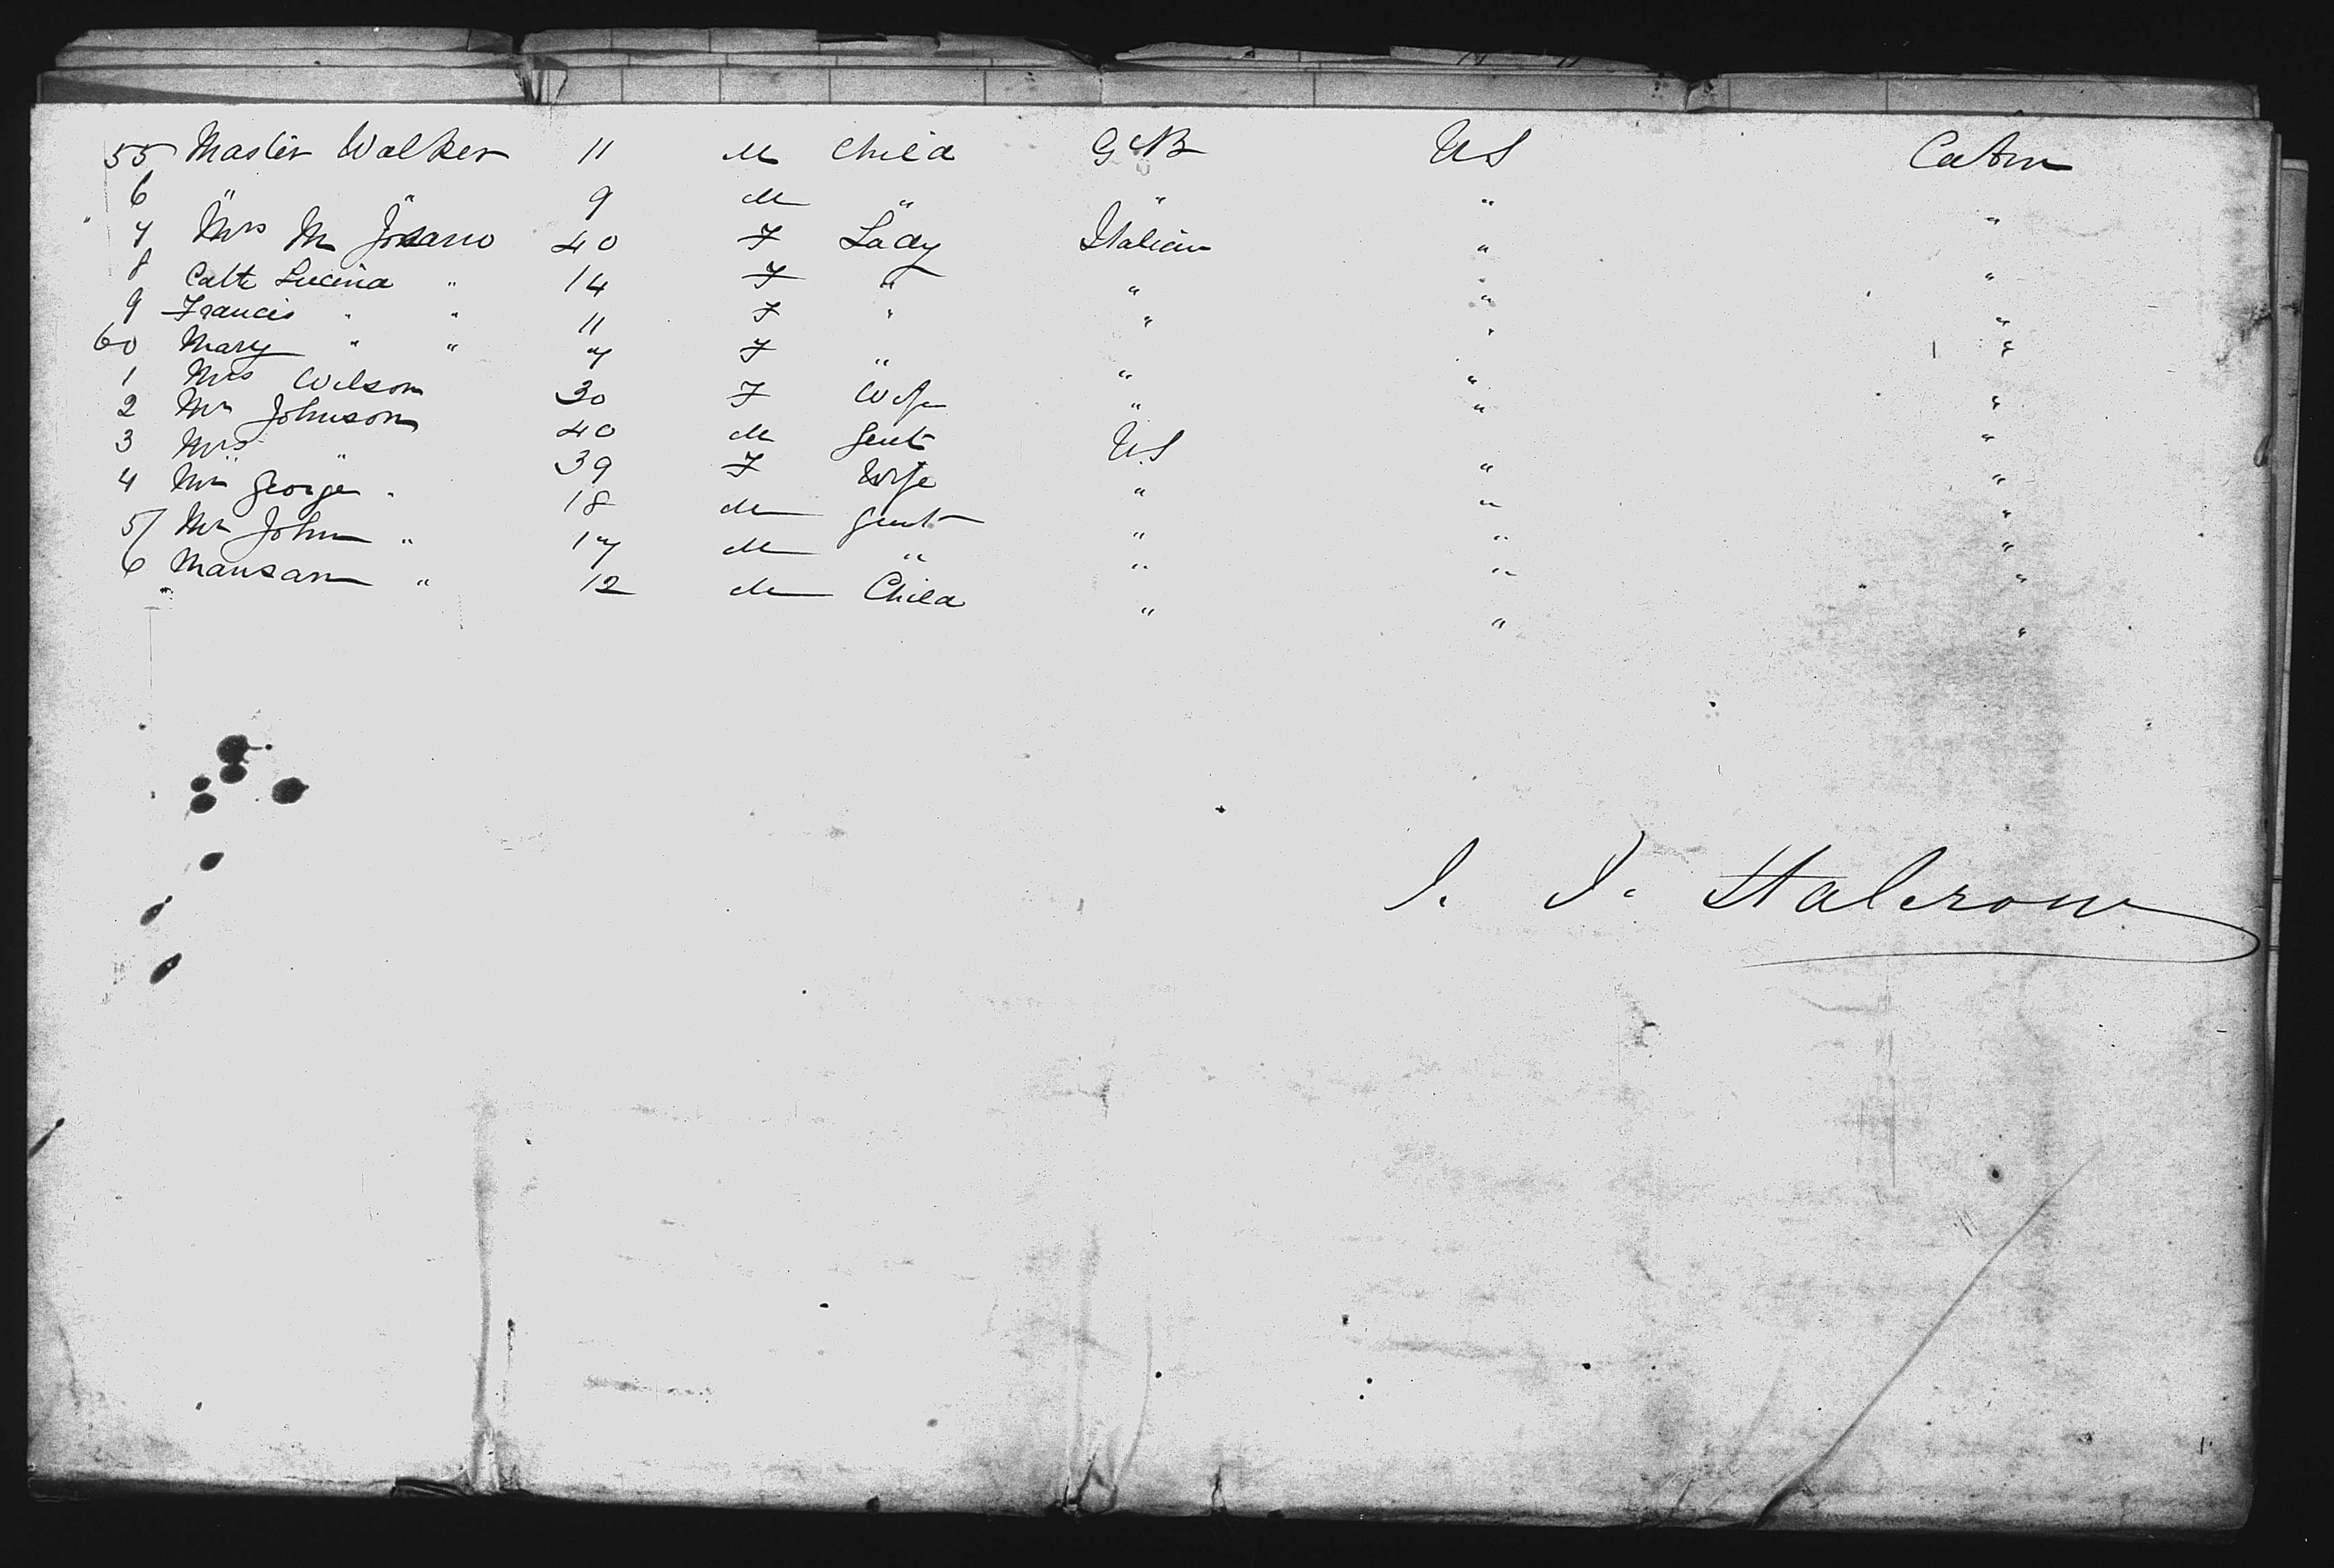 55 Master Walker 11 M Child GB US Cabin
6 " " 9 M " " " "
7 Mrs M 40 F Lady Italian " "
8 Lucina " 14 F " " " "
9 Francis " " 11 F " " " "
60 Mary " " 7 F " " " "
1 Mrs Wilson 30 F Wife " " "
2 Mr Johnson 40 M Gent US " "
3 Mrs " 39 F Wife " " "
4 Mr George " 18 M Gent " " "
5 Mr John " 17 M " " " "
6 " 12 M Child " " "
J. J. Halcrow